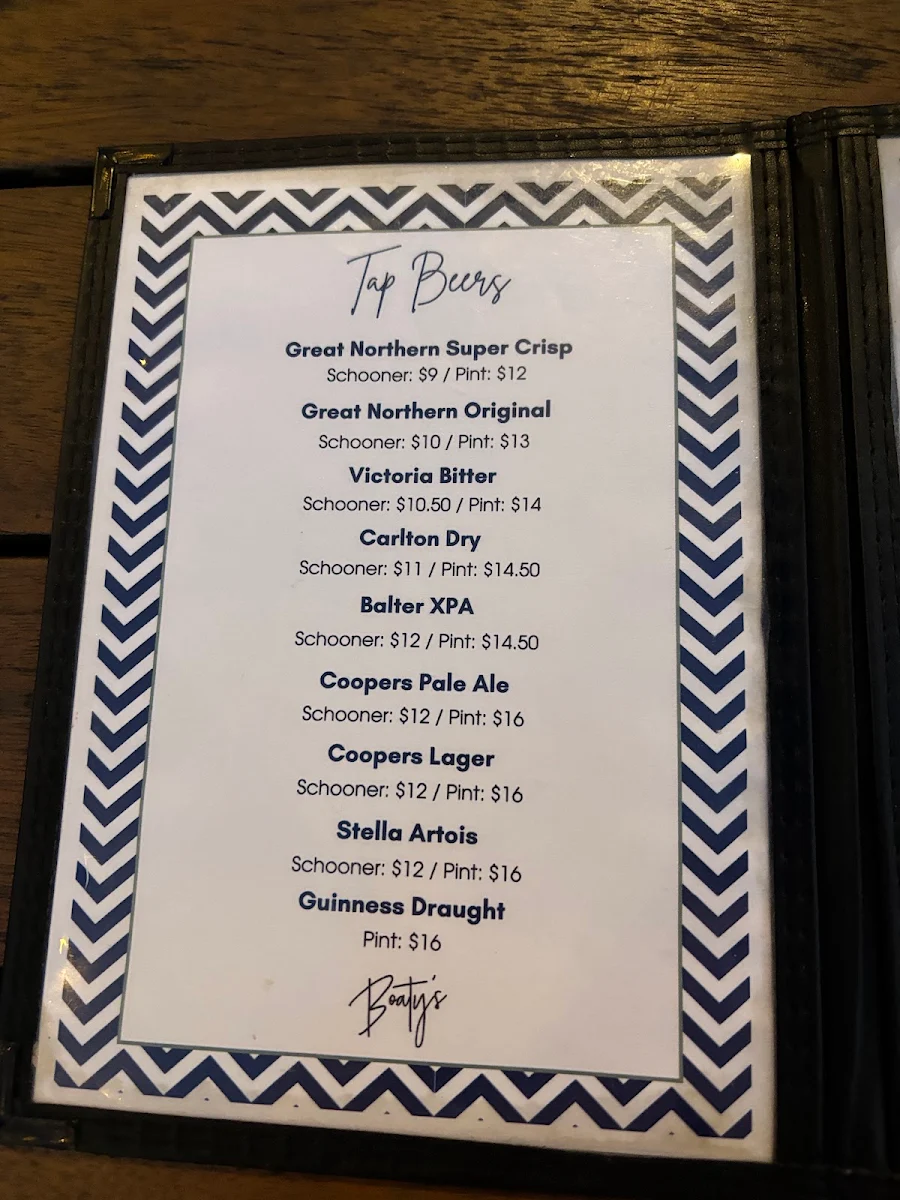 Tap Beers
Great Northern Super Crisp
Schooner: $9 / Pint: $12
Great Northern Original
Schooner: $10 / Pint: $13
Victoria Bitter
Schooner: $10.50 / Pint: $14
Carlton Dry
Schooner: $11 / Pint: $14.50
Balter XPA
Schooner: $12 / Pint: $14.50
Coopers Pale Ale
Schooner: $12 / Pint: $16
Coopers Lager
Schooner: $12 / Pint: $16
Stella Artois
Schooner: $12 / Pint: $16
Guinness Draught
Pint: $16
Boaty's